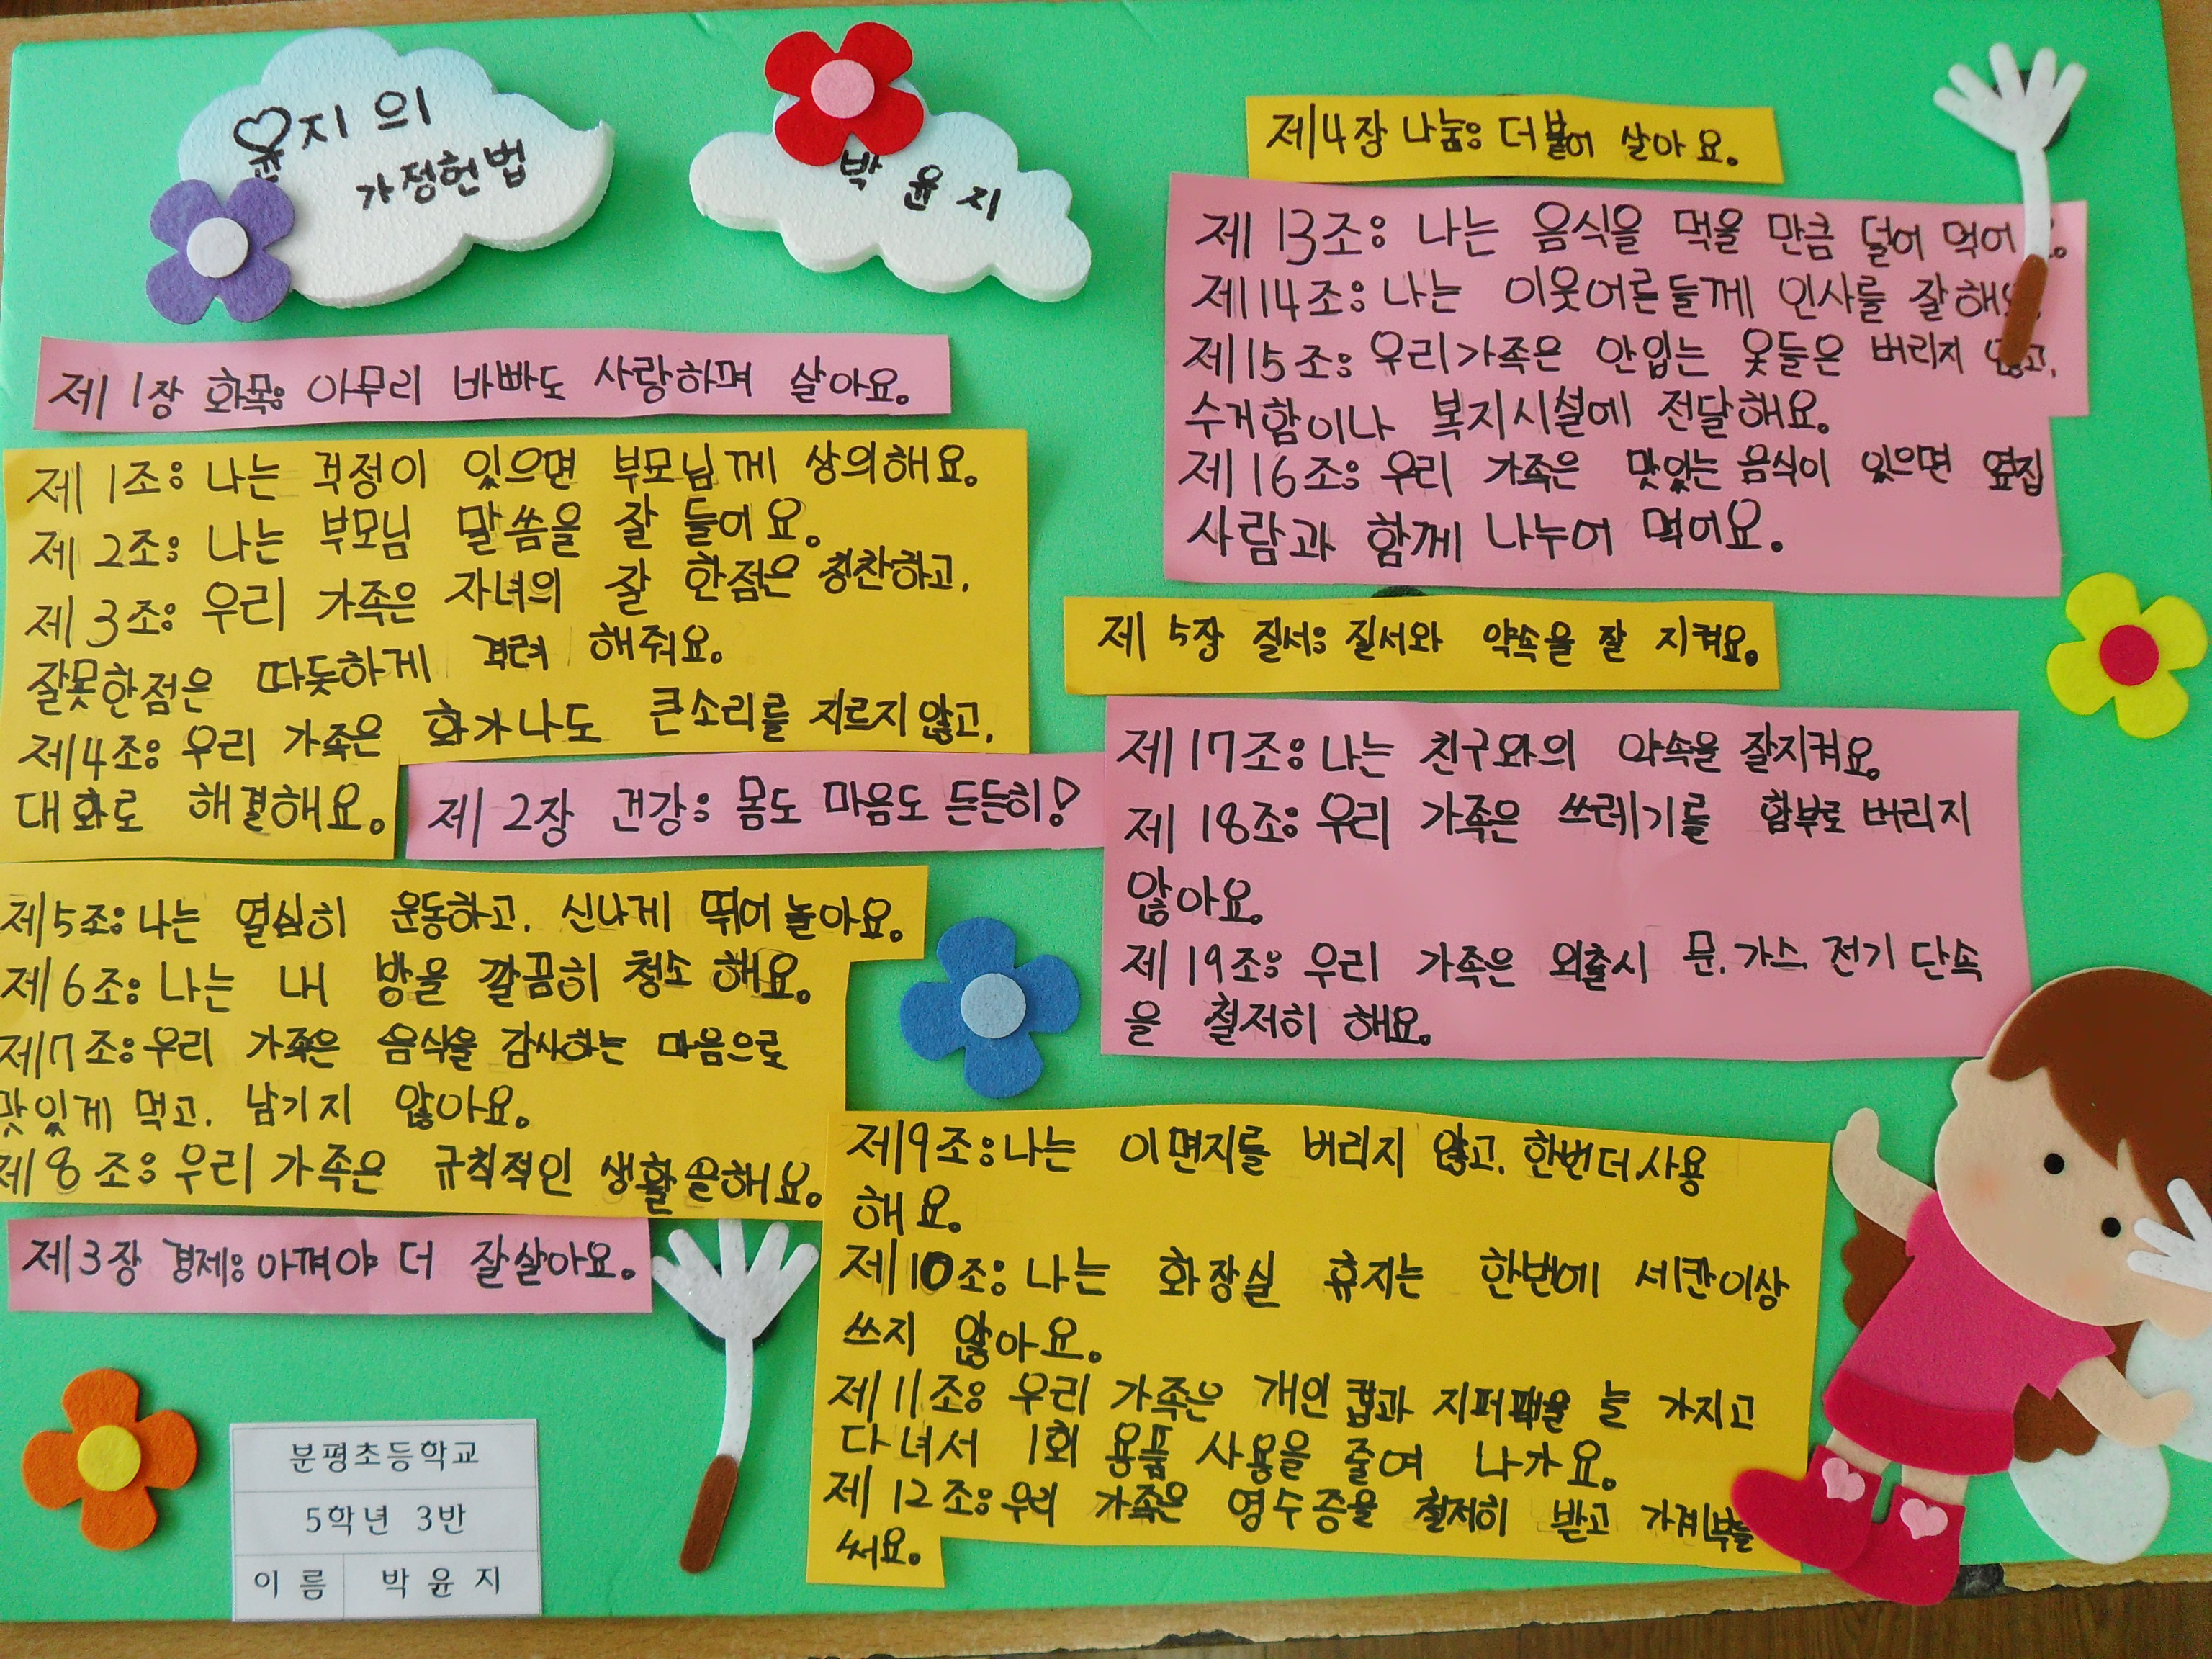 윤지의
가정헌법
박윤지
제1장 화목: 아무리 바빠도 사랑하며 살아요.
제1조: 나는 걱정이 있으면 부모님께 상의해요.
제2조: 나는 부모님 말씀을 잘 들어요.
제3조: 우리 가족은 자녀의 잘 한점은 칭찬하고,
잘못한점은 따듯하게 격려 해줘요.
제4조: 우리 가족은 화가나도 큰소리를 지르지 않고,
대화로 해결해요.
제2장 건강: 몸도 마음도 든든히!
제5조: 나는 열심히 운동하고, 신나게 뛰어 놀아요.
제6조: 나는 내 방을 깔끔히 청소 해요.
제7조: 우리 가족은 음식을 감사하는 마음으로
맛있게 먹고, 남기지 않아요.
제8조: 우리 가족은 규칙적인 생활을해요.
제3장 경제: 아껴야 더 잘살아요.
제9조: 나는 이면지를 버리지 않고, 한번더 사용
해요.
제10조: 나는 화장실 휴지는 한번에 세칸이상
쓰지 않아요.
제11조: 우리 가족은 개인 컵과 지퍼팩을 늘 가지고
다녀서 1회 용품 사용을 줄여 나가요.
제12조: 우리 가족은 영수증을 철저히 받고 가계부를
써요.
제4장 나눔: 더불어 살아요.
제13조: 나는 음식을 먹을 만큼 덜어 먹어
제14조: 나는 이웃어른들께 인사를 잘해요
제15조: 우리가족은 안입는 옷들은 버리지 않고,
수거함이나 복지시설에 전달해요.
제16조: 우리 가족은 맛있는 음식이 있으면 옆집
사람과 함께 나누어 먹어요.
제5장 질서: 질서와 약속을 잘 지켜요.
제17조: 나는 친구와의 약속을 잘지켜요.
제18조: 우리 가족은 쓰레기를 함부로 버리지
않아요.
제19조: 우리 가족은 외출시 문, 가스, 전기 단속
을 철저히 해요.
분평초등학교
5학년 3반
이름 박윤지